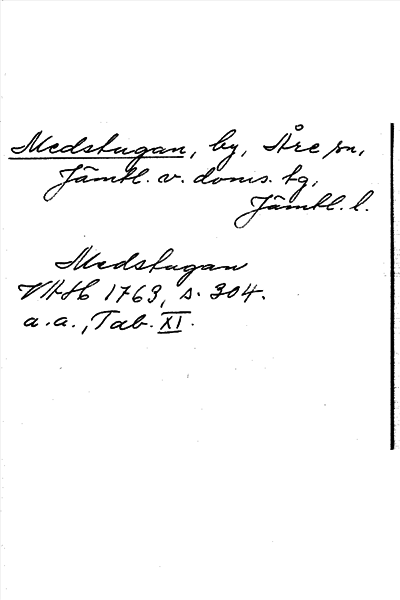 Medstugan, by, Åre sn,
Jämtl. v. doms. tg,
Jämtl. l.
Medstugan
VAH 1763, s. 304.
a.a., Tab. XI.